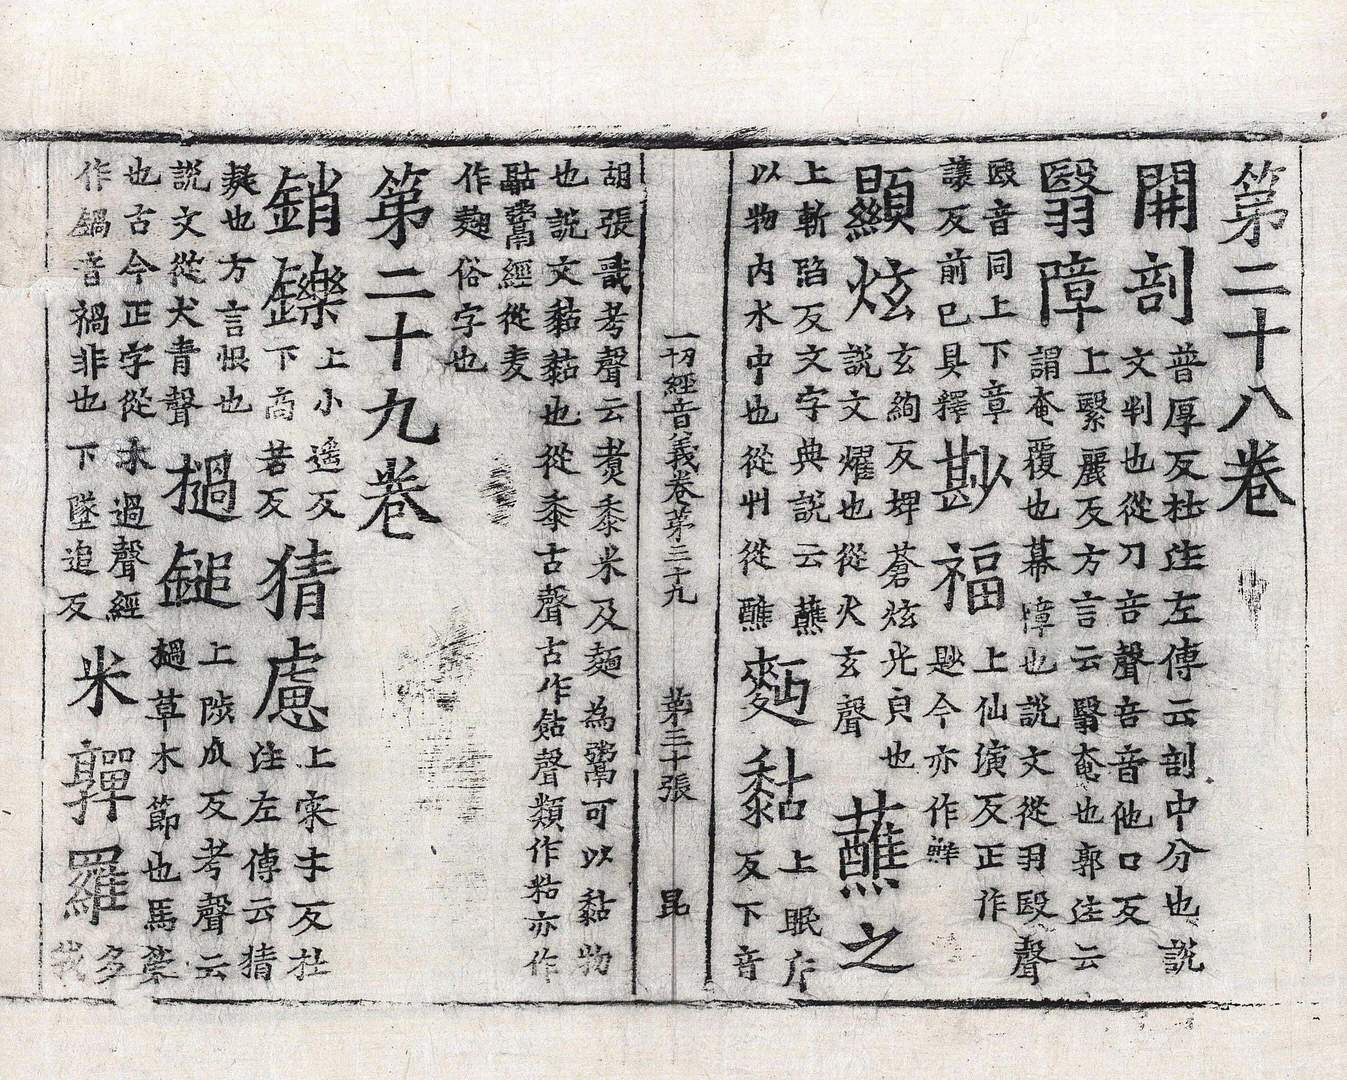 第二十八卷
開剖
普厚反杜注左傳云剖中分也說
文判也從刀咅聲咅音他口反
翳障
上繄麗反方言云翳奄也郭注云
謂奄覆也幕障也說文從羽殹聲
殹音同上下章
讓反前已具釋
尟福
上仙演反正作
尟今亦作鮮
顯炫
玄絢反埤蒼炫光皃也
說文燿也從火玄聲
蘸之
上斬陷反文字典說云蘸
以物內水中也從艸從醮
麪黏
上眠
反下音
一切經音義卷第三十九 第三十張 昆
胡張考聲云煑黍米及麵為鬻可以黏物
也說文黏黏也從黍古聲古作聲類作粘亦作
鬻經從麦
作麹俗字也
第二十九卷
銷鑠
上小遥反
下高若反
猜慮
上寀才反杜
注左傳云猜
也方言恨也
說文從犬青聲
檛鎚
上陟瓜反考聲云
檛草木節也馬檛
也古今正字從木過聲經
作鍋音禍非也下墜追反
米亸羅
多
我